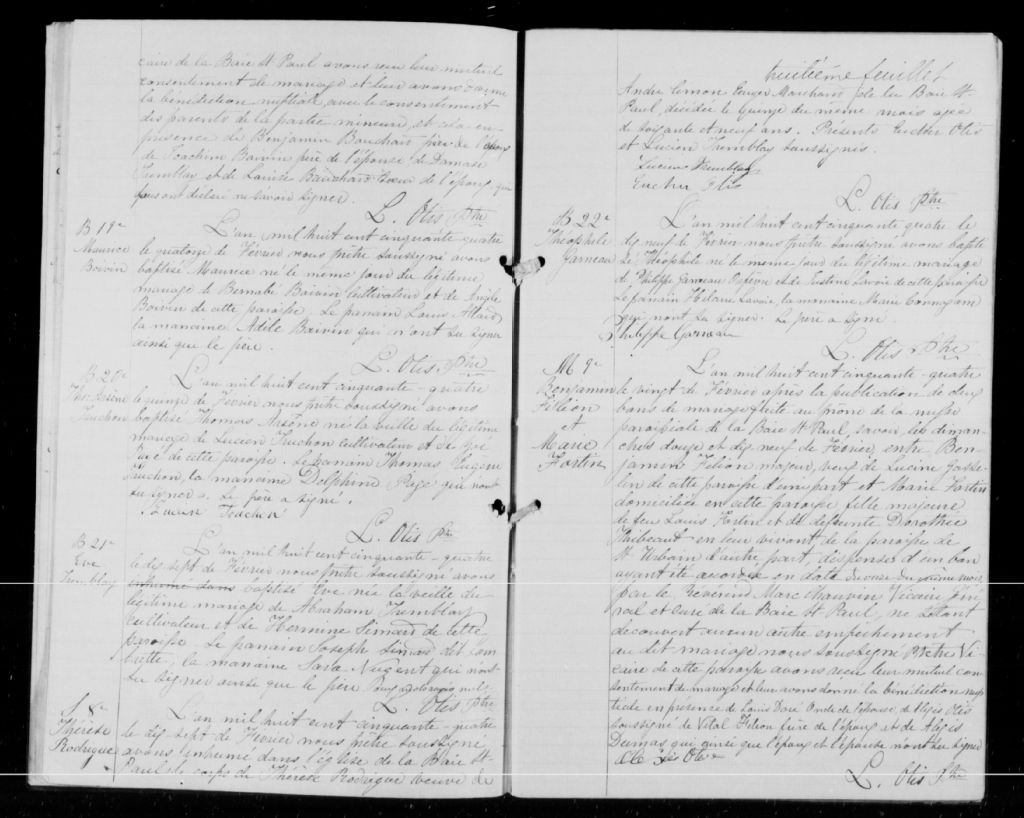 caire de la Baie St Paul avons reçu leur mutuel
consentement de mariage et leur avons donné
la bénédiction nuptiale, avec le consentement
des parents de la partie mineure, et cela en
présence de Benjamin Bouchard père de l'époux
de Joachim Boivin père de l'épouse, de Damase
Tremblay et de Louise Bouchard Soeur de l'époux, qui
tous ont déclaré ne savoir signer.
L. Otis Ptre
B 19e
Maurice
Boivin
L'an mil huit cent cinquante-quatre
le quatorze de Février nous prêtre soussigné avons
baptisé Maurice né le même jour du légitime
mariage de Bernabé Boivin Cultivateur et de Angèle
Boivin de cette paroisse. Le parrain Louis Allard
la marraine Adèle Boivin qui n'ont su signer
ainsi que le père.
L. Otis, Ptre
B 20e
Ths Arsène
Truchon
L'an mil huit cent cinquante-quatre
le quinze de Février nous prêtre soussigné avons
baptisé Thomas Arsène né la veille du légitime
mariage de Lucien Truchon Cultivateur et de
de cette paroisse. Le parrain Thomas Eugène
Truchon, la marraine Delphine Pagé qui n'ont
su signer. Le père a signé.
Truchon
L. Otis Ptre
B 21e
Eve
Tremblay
L'an mil huit cent cinquante-quatre
le dix sept de Février nous prêtre soussigné avons
inhumé dans baptisé Eve née la veille du
légitime mariage de Abraham Tremblay
Cultivateur et de Hermine Simard de cette
paroisse. Le parrain Joseph Simard dit Lom
brette, la marraine Sara Nugent qui n'ont
su signer ainsi que le père
L. Otis Ptre
S 8e
Thérèse
Rodrigue
L'an mil huit cent cinquante-quatre
le dix sept de Février nous prêtre soussigné
avons inhumé dans l'église de la Baie St
Paul le corps de Thérèse Rodrigue veuve de
huitième feuillet
André Simon Marchand de la Baie St
Paul, décédée le quinze du même mois agée
de soixante et neuf ans. Présents Eucher Otis
et Lucien Tremblay soussignés.
Lucien Tremblay
Eucher Otis
L. Otis Ptre
B 22e
Théophile
Garneau
L'an mil huit cent cinquante quatre le
dix neuf de Février nous prêtre soussigné avons baptis
sé Théophile né le même jour du légitime mariage
de Philippe Garneau Orfèvre et de Justine Lavoie de cette paroisse
Le parrain Hilaire Lavoie, la marraine Marie
qui n'ont su signer. Le père a signé.
Philippe Garneau
L. Otis, Ptre
M 9e
Benjamin
Filion
et
Marie
Fortin
L'an mil huit cent cinquante-quatre
le vingt de Février après la publication de deux
bans de mariage faite au prône de la messe
paroissiale de la Baie St Paul, savoir, les diman-
ches douze et dix neuf de Février, entre Ben-
jamin Filion majeur, veuf de Lucine Gosse-
lin de cette paroisse d'une part et Marie Fortin
domiciliée en cette paroisse fille majeure
de feu Louis Fortin et de défunte Dorothée
Thibeault en leur vivant de la paroisse de
St Urbain d'autre part, dispense d'un ban
ayant été accordée en date du onze du même mois
par le Révérend Marc Chauvin Vicaire Géné
ral et curé de la Baie St Paul, ne s'étant
découvert aucun autre empêchement
au dit mariage nous soussigné Prêtre Vi-
caire de cette paroisse avons reçu leur mutuel con-
sentement de mariage et leur avons donné la bénédiction nup
tiale en présence de Louis Doré Oncle de l'épouse de Alexis Otis
soussigné de Vital Filion frère de l'époux et de Alexis
Dumas qui ainsi que l'époux et l'épouse n'ont su signer
Alexis Otis
L. Otis Ptre